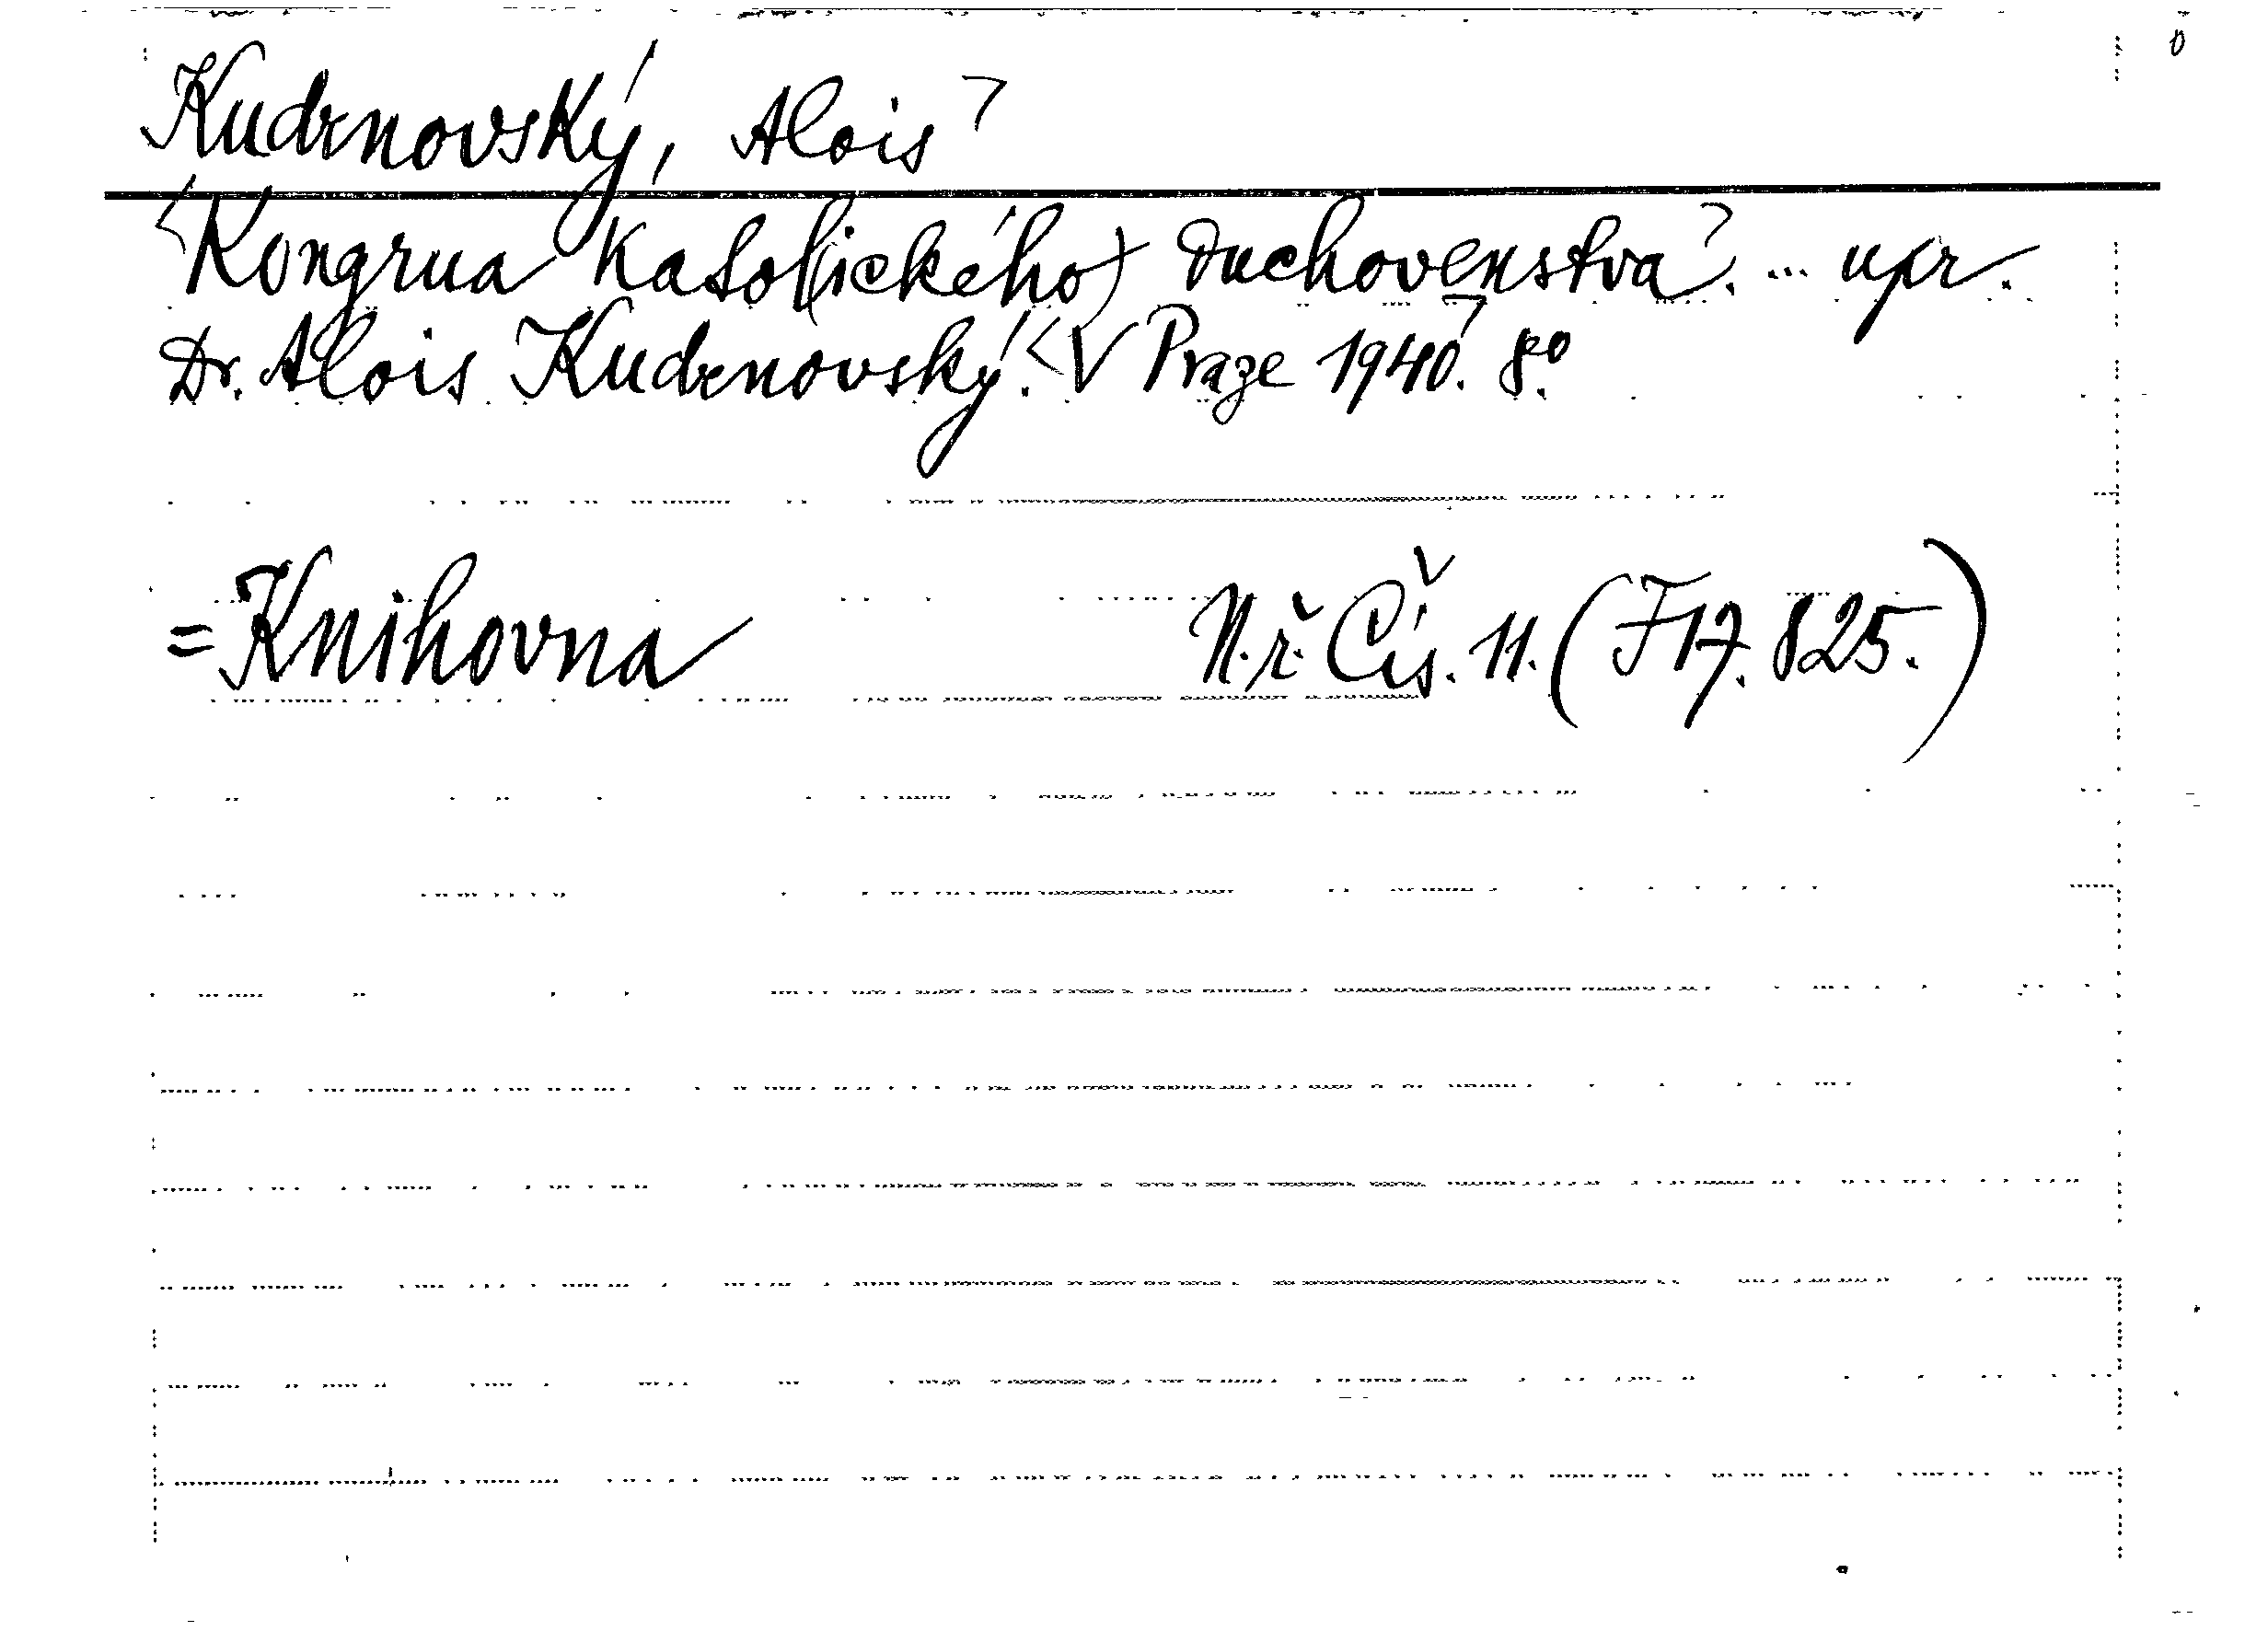 Kudrnovský, Alois
Kongrua katol(ického) duchovenstva. ... upr.
Dr. Alois Kudrnovský. V Praze 1940. 8º.
= Knihovna N.ř. Čís. 11. (F 17.825.)